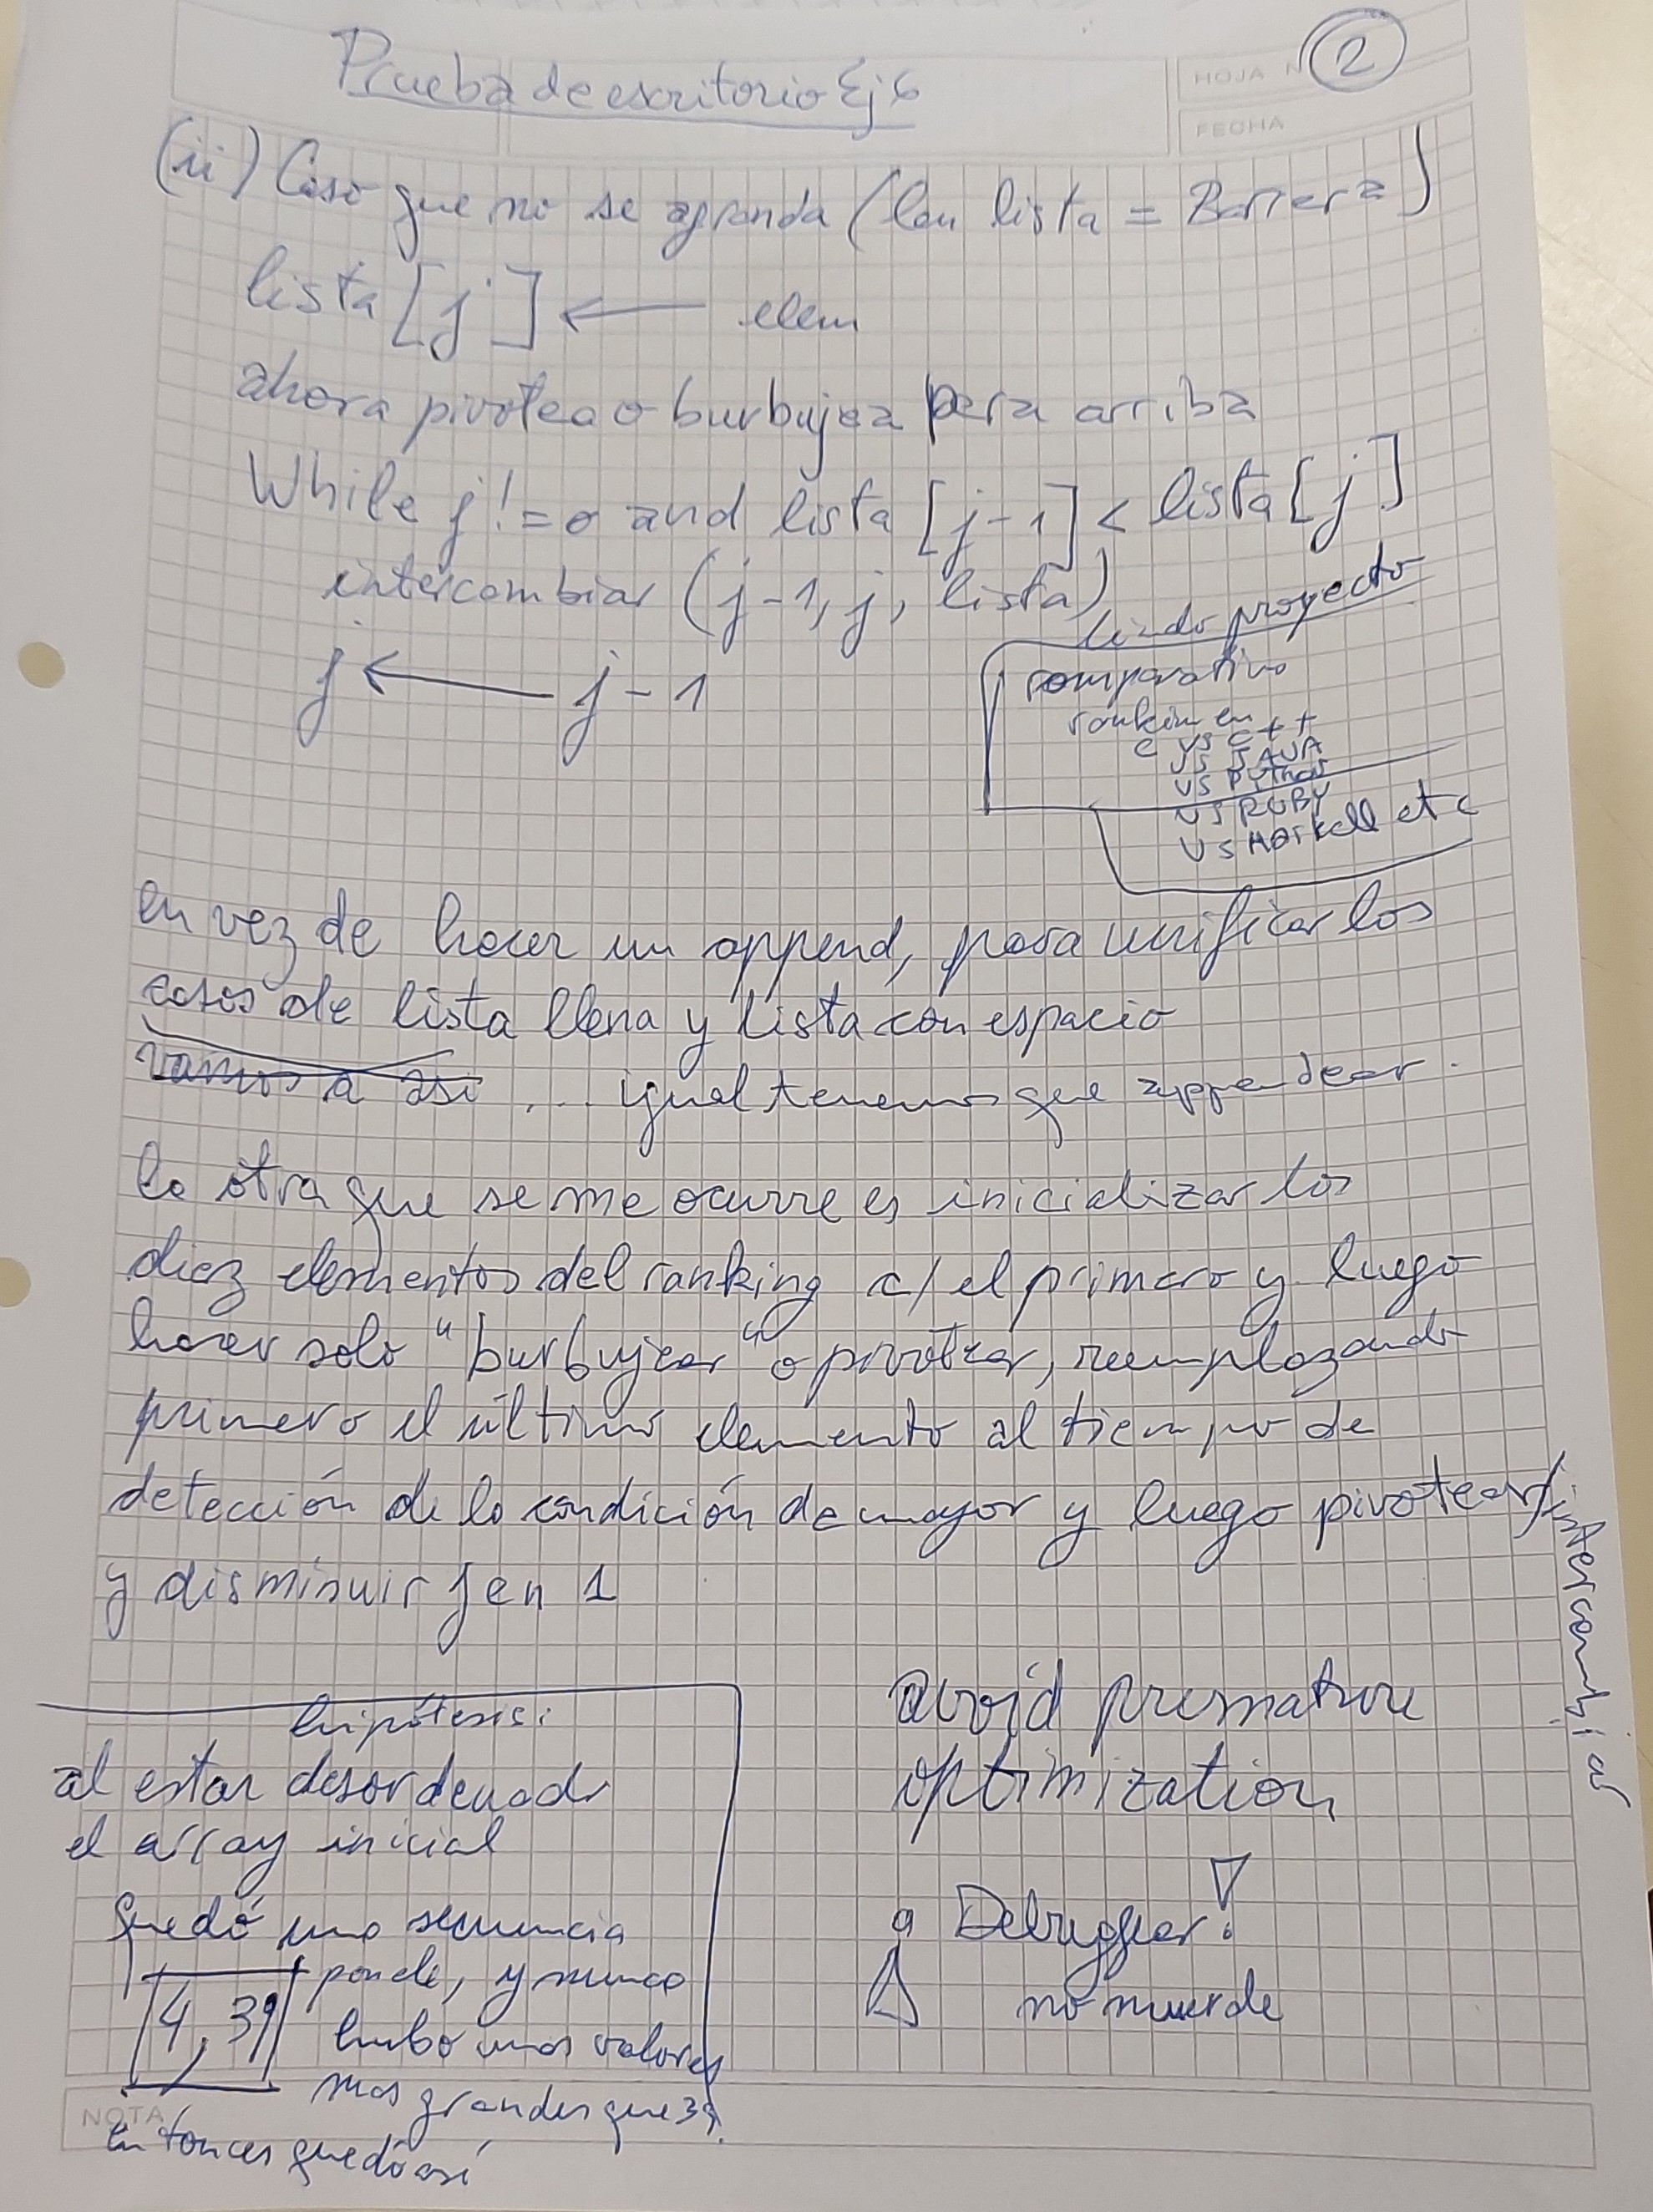 Prueba de escritorio Ej 6
HOJA N
2
FECHA
(ii) Caso que no se agranda (len lista = Barrera)
lista[j] ← elem
ahora pivotea o burbujea para arriba
While j != 0 and lista [j-1] < lista [j]
intercambiar (j-1, j, lista)
j ← j-1
lindo proyecto
comparativo
en
C vs C++
vs JAVA
vs Python
vs RUBY
vs Haskell etc
en vez de hacer un append, para unificar los
casos de lista llena y lista con espacio
vamos a asi ... igual tenemos que appendear.
lo otra que se me ocurre es inicializar los
diez elementos del ranking c/ el primero y luego
hacer solo "burbujear" o pivotear, reemplazando
primero el último elemento al tiempo de
detección de la condición de mayor y luego pivotear/intercambiar
y disminuir j en 1
hipótesis:
al estar desordenado
el array inicial
quedó una secuencia
ponele, y nunca
4, 39
hubo unos valores
mas grandes que 39.
entonces quedó así
avoid premature
optimization
a Debuggear!
no muerde
NOTA